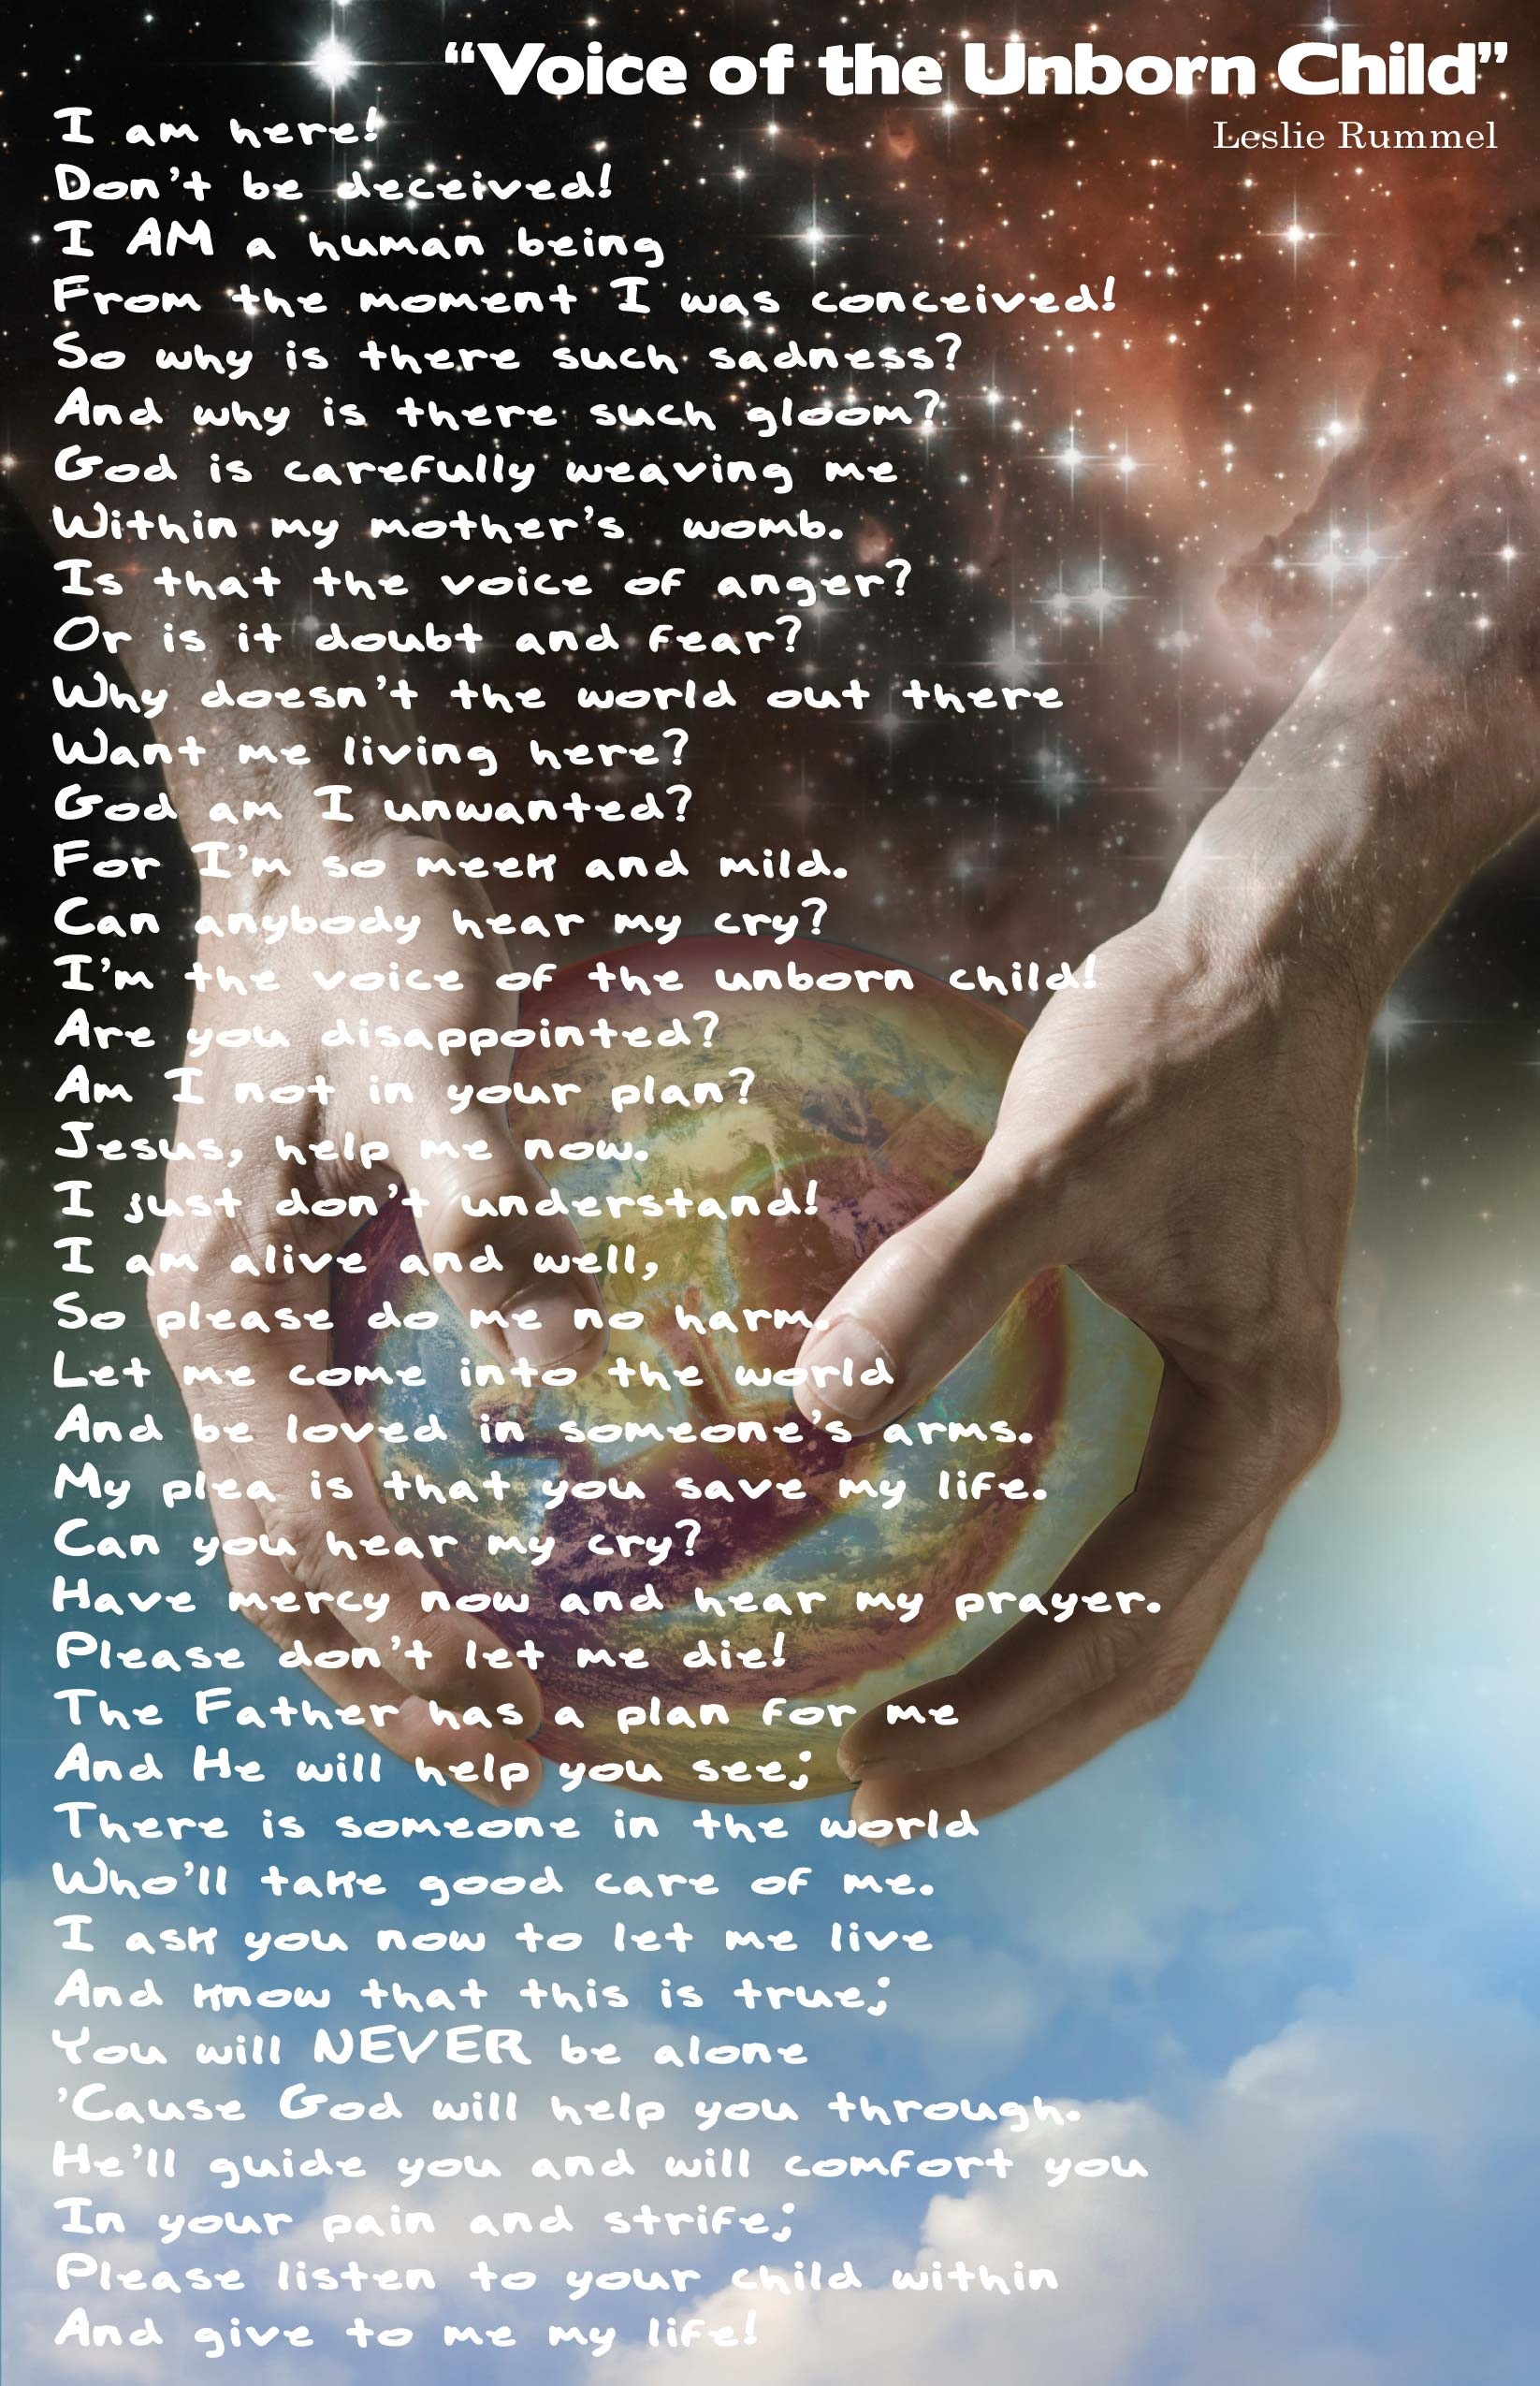 “Voice of the Unborn Child”
Leslie Rummel
I am here!
Don't be deceived!
I AM a human being
From the moment I was conceived!
So why is there such sadness?
And why is there such gloom?
God is carefully weaving me
Within my mother's womb.
Is that the voice of anger?
Or is it doubt and fear?
Why doesn't the world out there
Want me living here?
God am I unwanted?
For I'm so meek and mild.
Can anybody hear my cry?
I'm the voice of the unborn child!
Are you disappointed?
Am I not in your plan?
Jesus, help me now.
I just don't understand!
I am alive and well,
So please do me no harm.
Let me come into the world
And be loved in someone's arms.
My plea is that you save my life.
Can you hear my cry?
Have mercy now and hear my prayer.
Please don't let me die!
The Father has a plan for me
And He will help you see;
There is someone in the world
Who'll take good care of me.
I ask you now to let me live
And know that this is true;
You will NEVER be alone
'Cause God will help you through.
He'll guide you and will comfort you
In your pain and strife;
Please listen to your child within
And give to me my life!